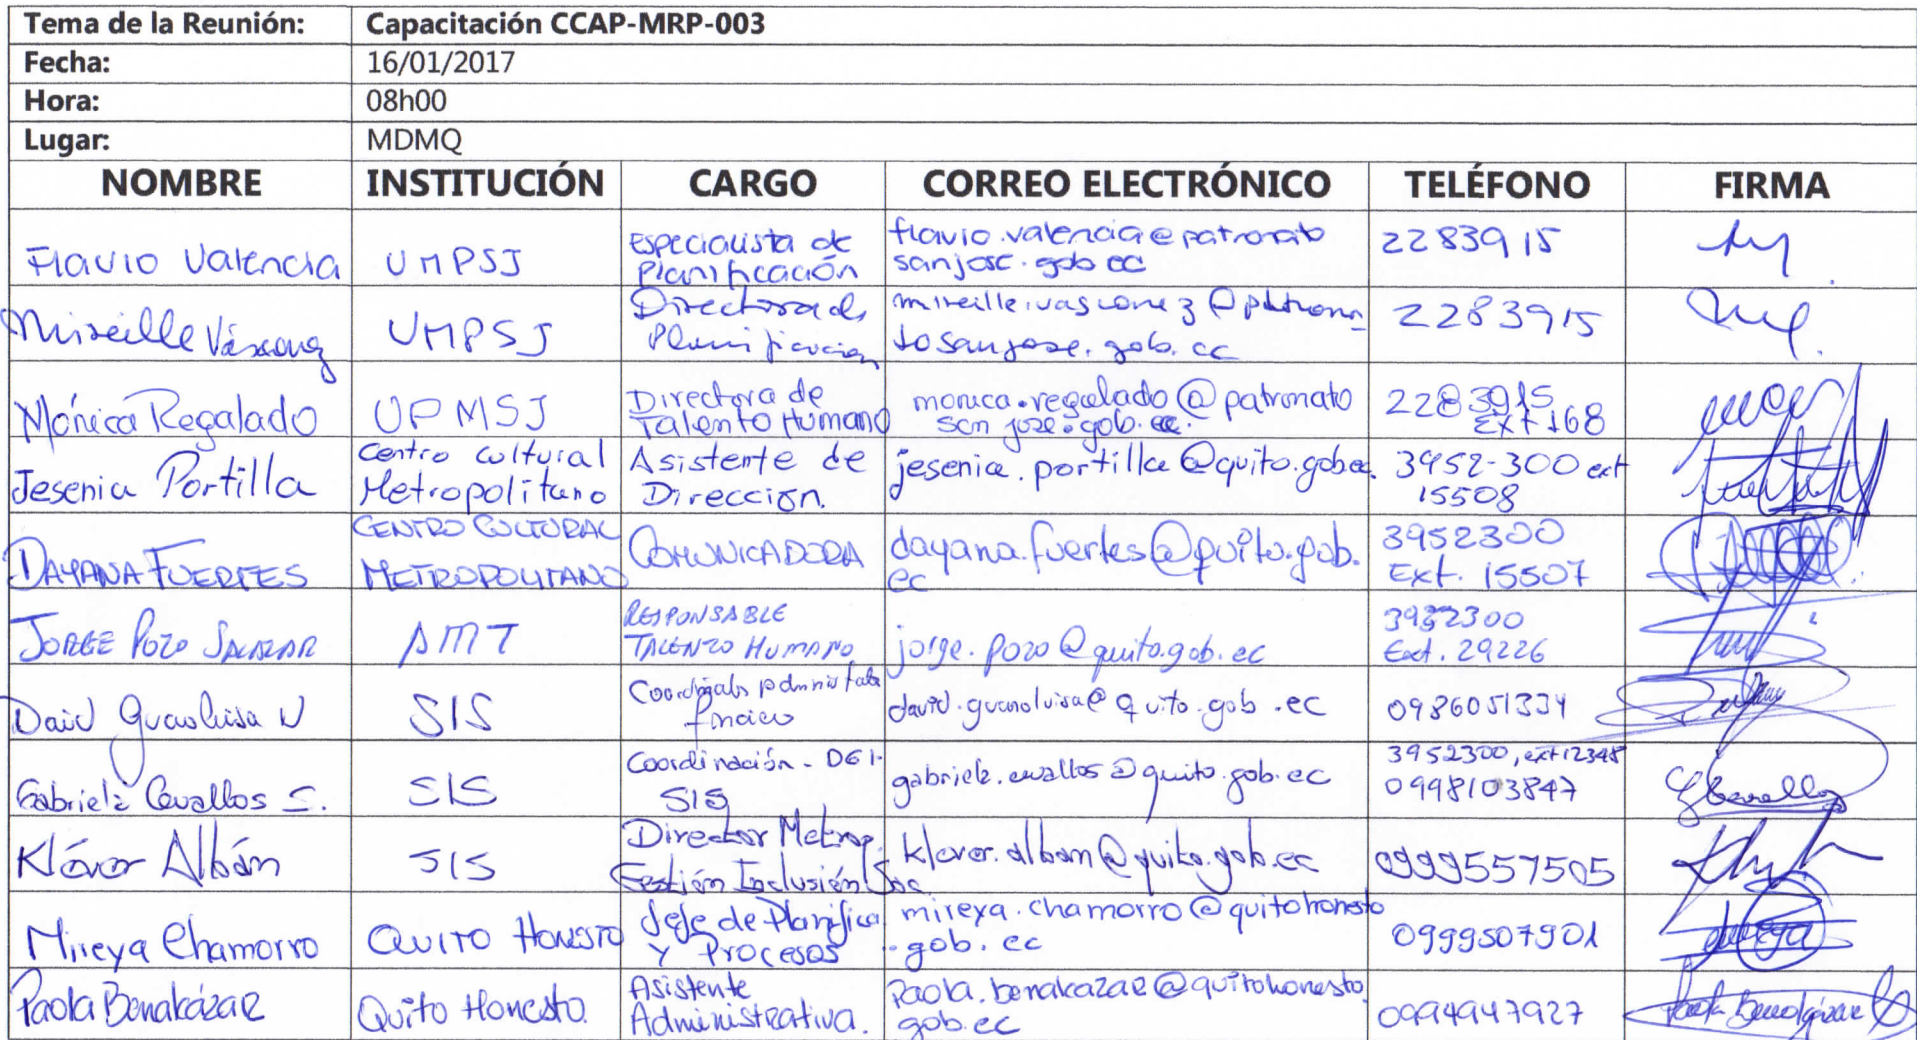 Tema de la Reunión: Capacitación CCAP-MRP-003
Fecha: 16/01/2017
Hora: 08h00
Lugar: MDMQ
NOMBRE INSTITUCIÓN CARGO CORREO ELECTRÓNICO TELÉFONO FIRMA
Flavio Valencia UMPSJ Especialista de Planificación flavio.valencia@patronato sanjose.gob.ec 2283915
Mireille UMPSJ Directora de Planificacion 2283915
Mónica Regalado UPMSJ Directora de Talento Humano monica.regalado@patronato san jose.gob.ec. 2283915 Ext 168
Jesenia Portilla Centro cultural Metropolitano Asistente de Dirección. jesenia.portilla@quito.gob.ec 3952-300 ext 15508
DAYANA FUERTES CENTRO CULTURAL METROPOLITANO COMUNICADORA dayana.fuertes@quito.gob. ec 3952300 Ext. 15507
JORGE POZO SALAZAR AMT RESPONSABLE TALENTO HUMANO jorge.pozo@quito.gob.ec 3952300 Ext. 29226
David Guanoluisa N SIS david.guanoluisa@quito.gob.ec 0986051334
Gabriela Cevallos S. SIS Coordinación - DGI- SIS gabriela.cevallos@quito.gob.ec 3952300, ext 12348 0998103847
Kléver Albán SIS Director Metrop. Gestión Inclusión Soc. klever.alban@quito.gob.ec 0999557505
Mireya Chamorro QUITO HONESTO Jefe de Planifica y Procesos mireya.chamorro@quitohonesto .gob.ec 0999507901
Paola Benalcázar Quito Honesto. Asistente Administrativa. Paola.benalcazar@quitohonesto. gob.ec 0994947927 Paola Benalcázar